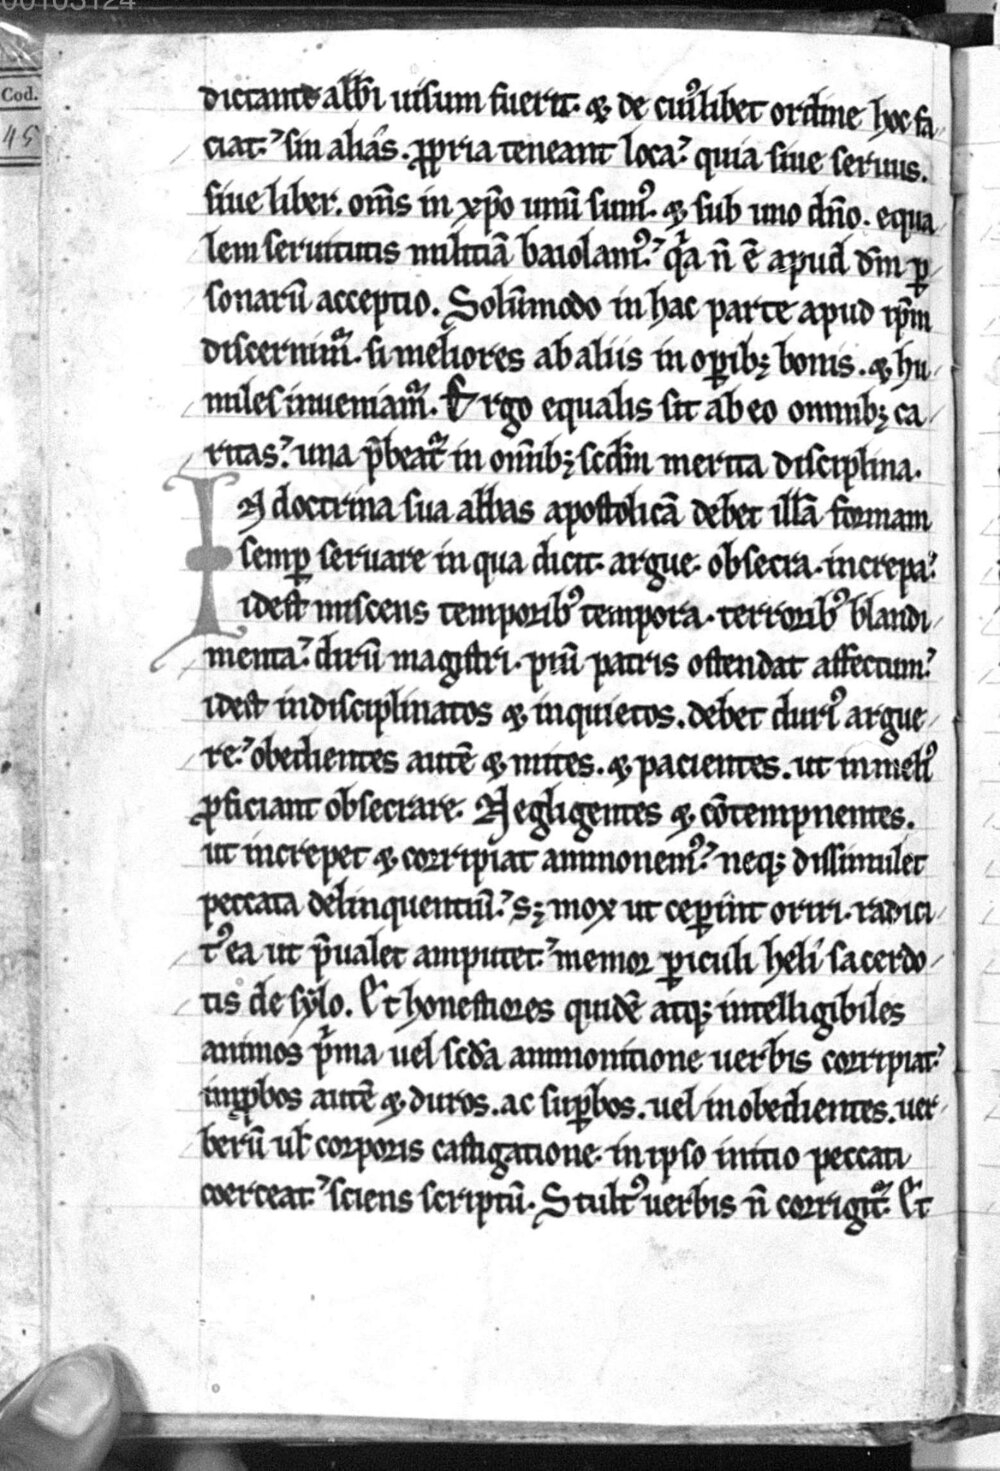 00103124
Cod.
45
dictante abb̄i uisum fuerit. ⁊ de cuiꝰlibet ordine hoc fa
ciat.ˀ sin aliás. ꝓpria teneant loca.ˀ quia siue seruus.
siue liber. om̄s in xp̄o unū sumꝰ. ⁊ sub uno dn̄o. equa
lem seruitutis militiā baiolamꝰ.ˀ qͥa n̄ ē apud dm̄ ꝑ
sonarū acceptio. Solūmodo in hac parte apud ip̄m
discernimᷓ. si meliores ab aliis in oꝑibꝫ bonis. ⁊ hu
miles inueniamᷓ. Ergo equalis sit ab eo omnibꝫ ca
ritas.ˀ una p̄beatᷓ in om̄ibꝫ scd̄m merita disciplina.
IN doctrina sua abbas apostolicā debet illā formam
semꝑ seruare in qua dicit. argue. obsecra. increpa.ˀ
idest miscens temporibꝰ tempora. terroribꝰ blandi
menta.ˀ dirū magistri. piū patris ostendat affectum.ˀ
idest indisciplinatos ⁊ inquietos. debet duriꝰ argue
re.ˀ obedientes autē ⁊ mites. ⁊ pacientes. ut in meliꝰ
ꝓficiant obsecrare. Negligentes ⁊ cōtempnentes.
ut increpet ⁊ corripiat ammonemꝰ.ˀ neqꝫ dissimulet
peccata delinquentiū.ˀ sꝫ mox ut ceꝑint oriri. radici
tꝰ ea ut p̄ualet amputet.ˀ memor ꝑiculi heli sacerdo
tis de sylo. Et honestiores quidē atqꝫ intelligibiles
animos pͥma uel scd̄a ammonitione uerbis corripiat.ˀ
inꝓbos autē ⁊ duros. ac suꝑbos. uel inobedientes. uer
berū ul̄ corporis castigatione. in ipso initio peccati
coerceat.ˀ sciens scriptū. Stultꝰ uerbis n̄ corrigitᷓ. Et